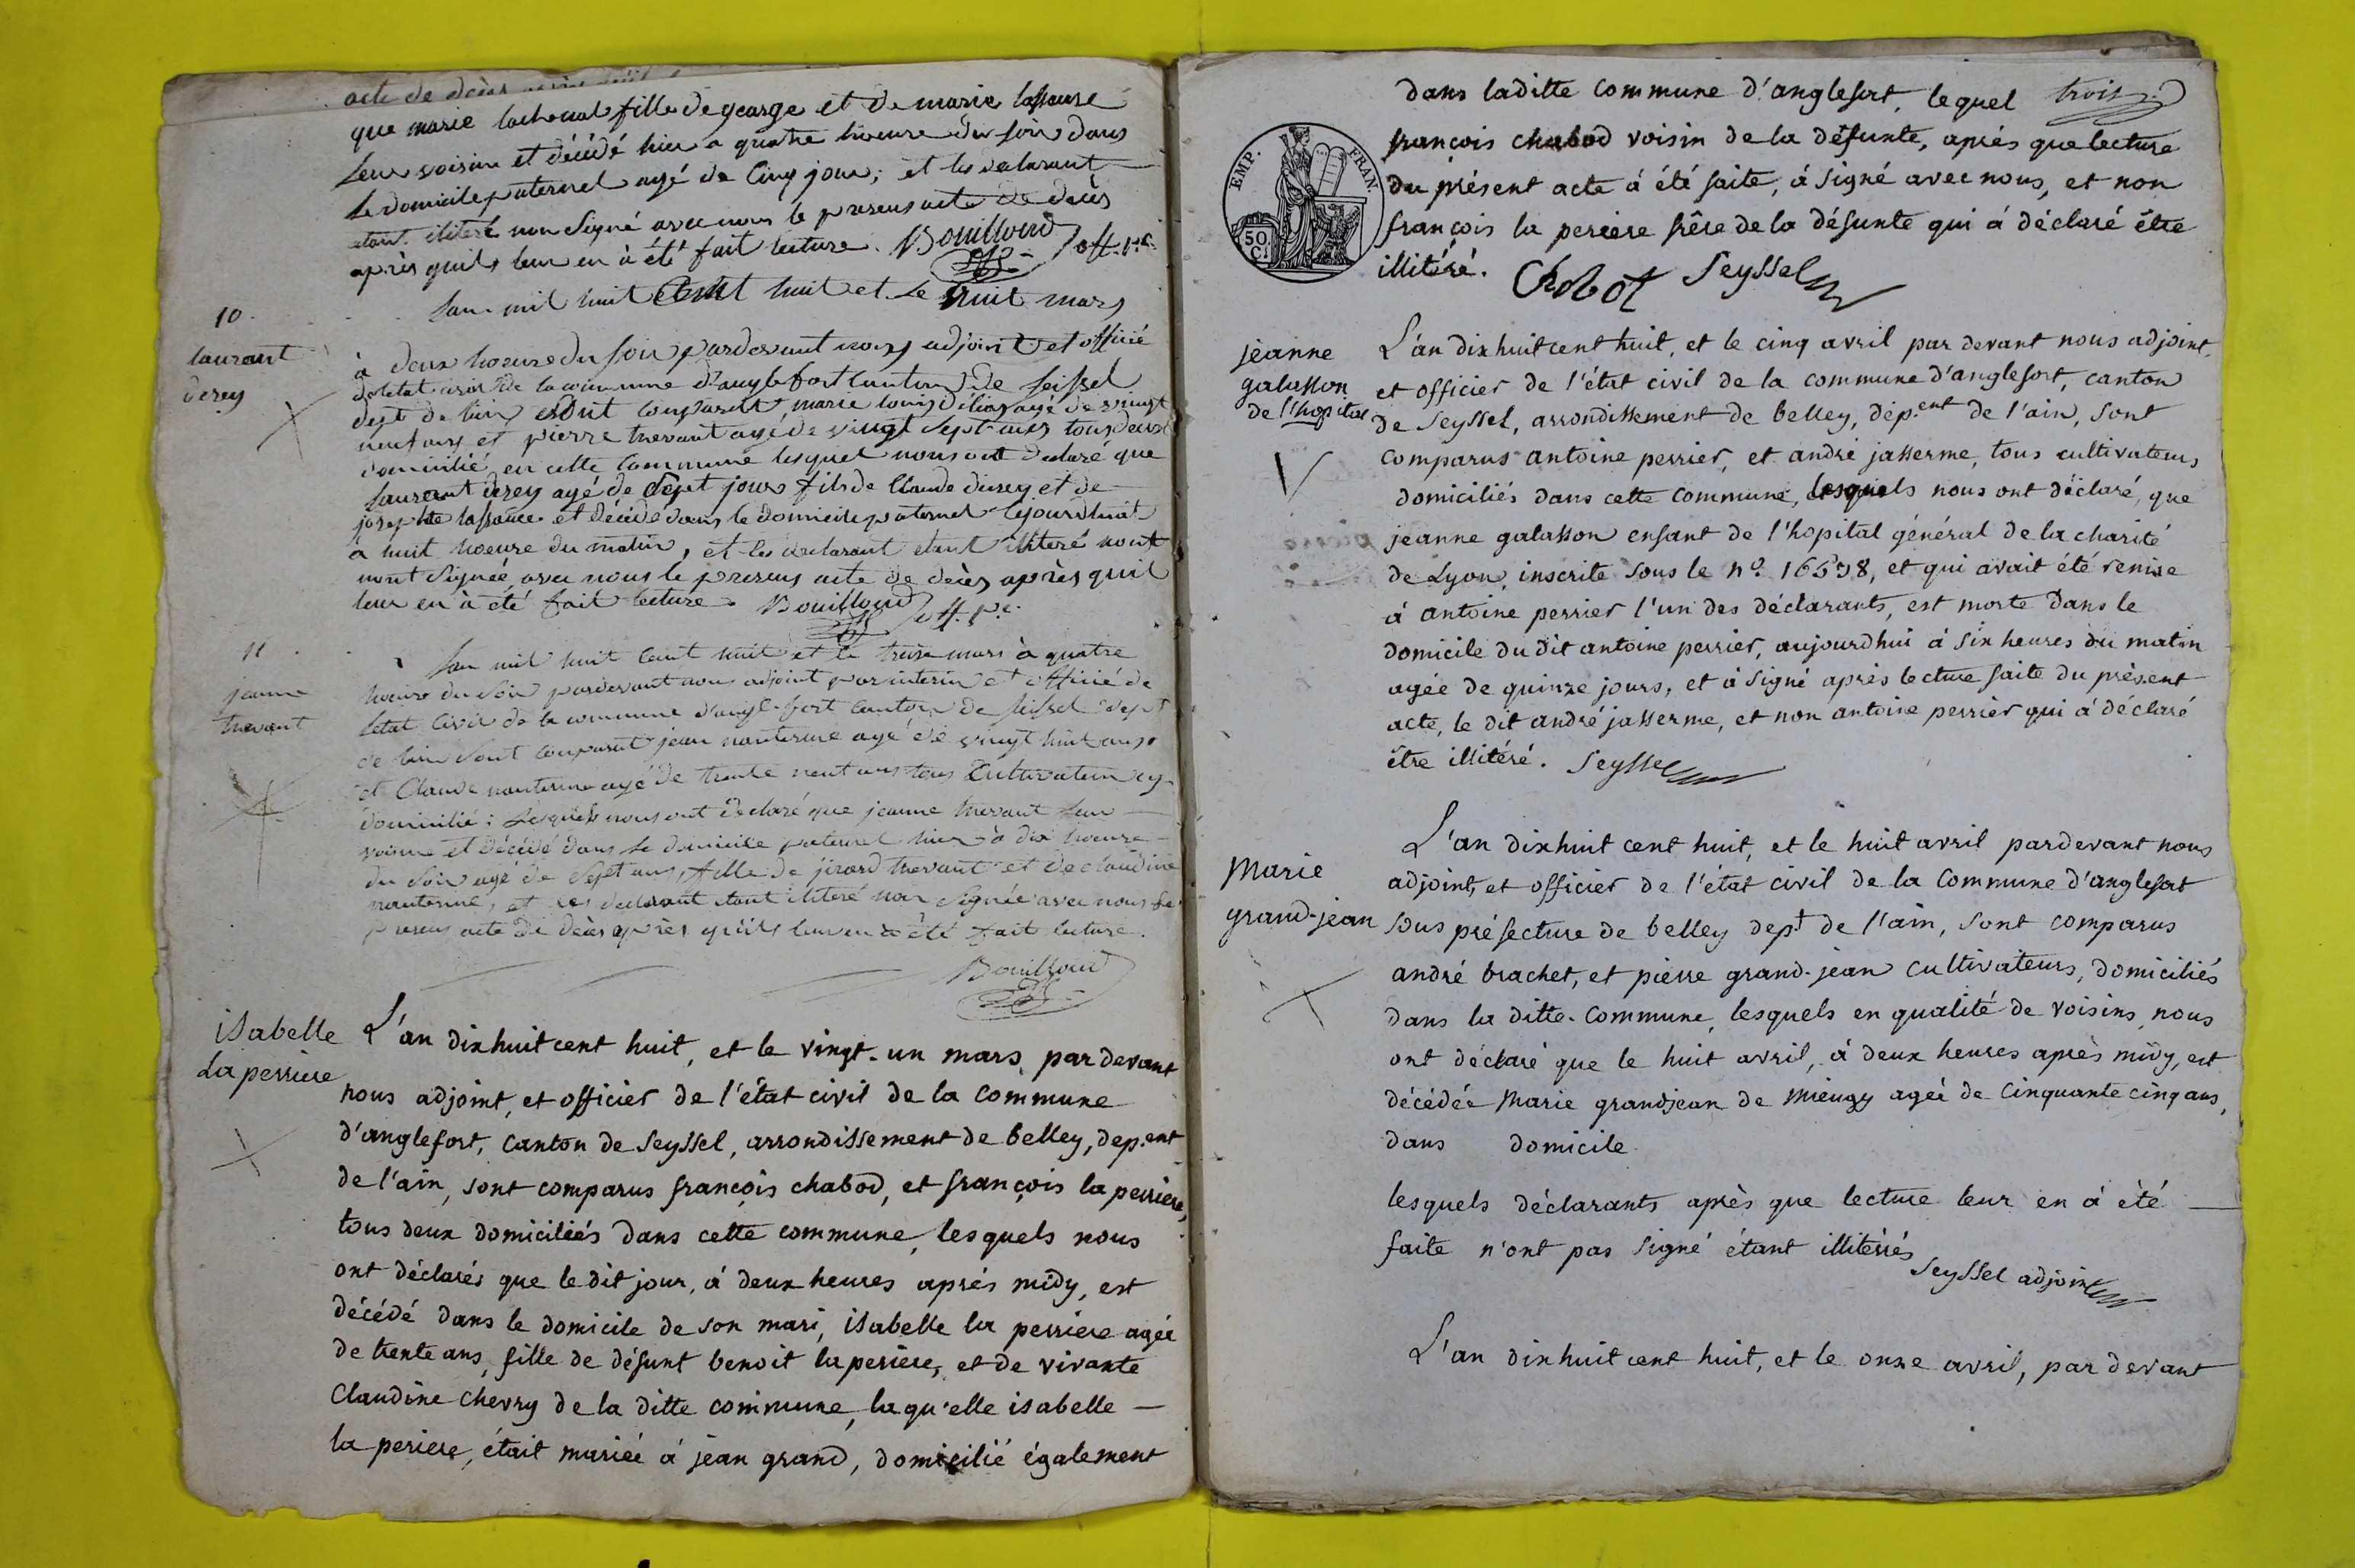 acte de decès
que marie lachenal fille de gearge et de marie lassause
leur voisin et décédé hier a quatre hoeure du soir dans
le domicile paternel agé de Cinq jour; et les declarant
etant iliteré non Signé avec nous le presens acte de decès
après quils leur en à été fait lecture. Bouilloud off. pc.
10.
laurant
derey
lan mil huit Cent huit et le huit mars
à deux hoeure du soir pardevant nous adjoint et officié
deletat civil de la commune d'anglefort Canton de seissel
dept de lain sont comparut marie louis agé de vingt
neuf ans et pierre thevant agé de vingt sept ans tous deux
domicilié en cette Commune lesquel nous ont declaré que
laurant derey agé de sept jours fils de Claude derey et de
josephte lassauce et décédé dans le domicile paternel cejourdhui
à huit hoeure du matin, et les declarant etant iliteré nont
nont Signée avec nous le presens acte de decès après quil
leur en à été fait lecture. Bouilloud off. pc.
11
jeanne
thevant
lan mil huit Cent huit et le treise mars à quatre
hoeure du Soir pardevant nous adjoint par interin et officié de
letat Civil de la commune d'anglefort Canton de seissel dept
de lain sont comparut jean nanterme agé de vingt huit ans
et Claude nanterme agé de trente neuf ans tous Cultivateur cy
domicilié: Lesquels nous ont declaré que jeanne thevant leur
voisine et décédé dans le domicile paternel hier à dix hoeure
du Soir agé de Sept ans, fille de jirard thevant et de claudine
nanterme, et les declarant etant iliteré non Signée avec nous le
presens acte de decès après quils leur en à été fait lecture.
Bouilloud
isabelle
La perriere
L'an dixhuit cent huit, et le vingt-un mars par devant
nous adjoint, et officier de l'état civil de la commune
d'anglefort, canton de Seyssel, arrondissement de belley, dep.ent
de l'ain, sont comparus françois chabod, et françois la perriere,
tous deux domiciliés dans cette commune, lesquels nous
ont déclarés que le dit jour, à deux heures après midy, est
décédé dans le domicile de son mari, isabelle la perriere agée
de trente ans, fille de défunt benoit la periere, et de vivante
Claudine chevry de la ditte commune, laqu'elle isabelle —
la periere, était mariée à jean grand, domicilié également
dans laditte commune d'anglefort, lequel trois
EMP. FRAN.
50 C.
françois chabod voisin de la défunte, après que lecture
du présent acte à été faite, à signé avec nous, et non
françois la periere frère de la défunte qui à déclaré être
illitéré. Chobot Seyssel
jeanne
galasson
de l'hopital
L'an dix huit cent huit, et le cinq avril par devant nous adjoint,
et officier de l'état civil de la commune d'anglefort, canton
de Seyssel, arrondissement de belley, dép.ent de l'ain, sont
comparus antoine perrier, et andré jasserme, tous cultivateurs
domiciliés dans cette commune, lesquels nous ont déclaré, que
jeanne galasson enfant de l'hopital général de la charité
de Lyon, inscrite sous le n°. et qui avait été remise
à antoine perrier l'un des déclarants, est morte dans le
domicile du dit antoine perrier, aujourdhui à six heures du matin
agée de quinze jours, et à signé après lecture faite du présent
acte, le dit andré jasserme, et non antoine perrier qui à déclaré
être illitéré. Seyssel
Marie
grand-jean
L'an dixhuit cent huit, et le huit avril pardevant nous
adjoint, et officier de l'état civil de la commune d'anglefort
sous préfecture de belley dept de l'ain, sont comparus
andré brachet, et pierre grand-jean cultivateurs, domiciliés
dans la ditte commune, lesquels en qualité de voisins nous
ont déclaré que le huit avril, à deux heures après midy, est
décédée Marie grandjean de mieugy agée de cinquante cinq ans,
dans domicile
lesquels déclarants après que lecture leur en à été —
faite n'ont pas signé étant illitérés
Seyssel adjoint
L'an dixhuit cent huit, et le onze avril, par devant